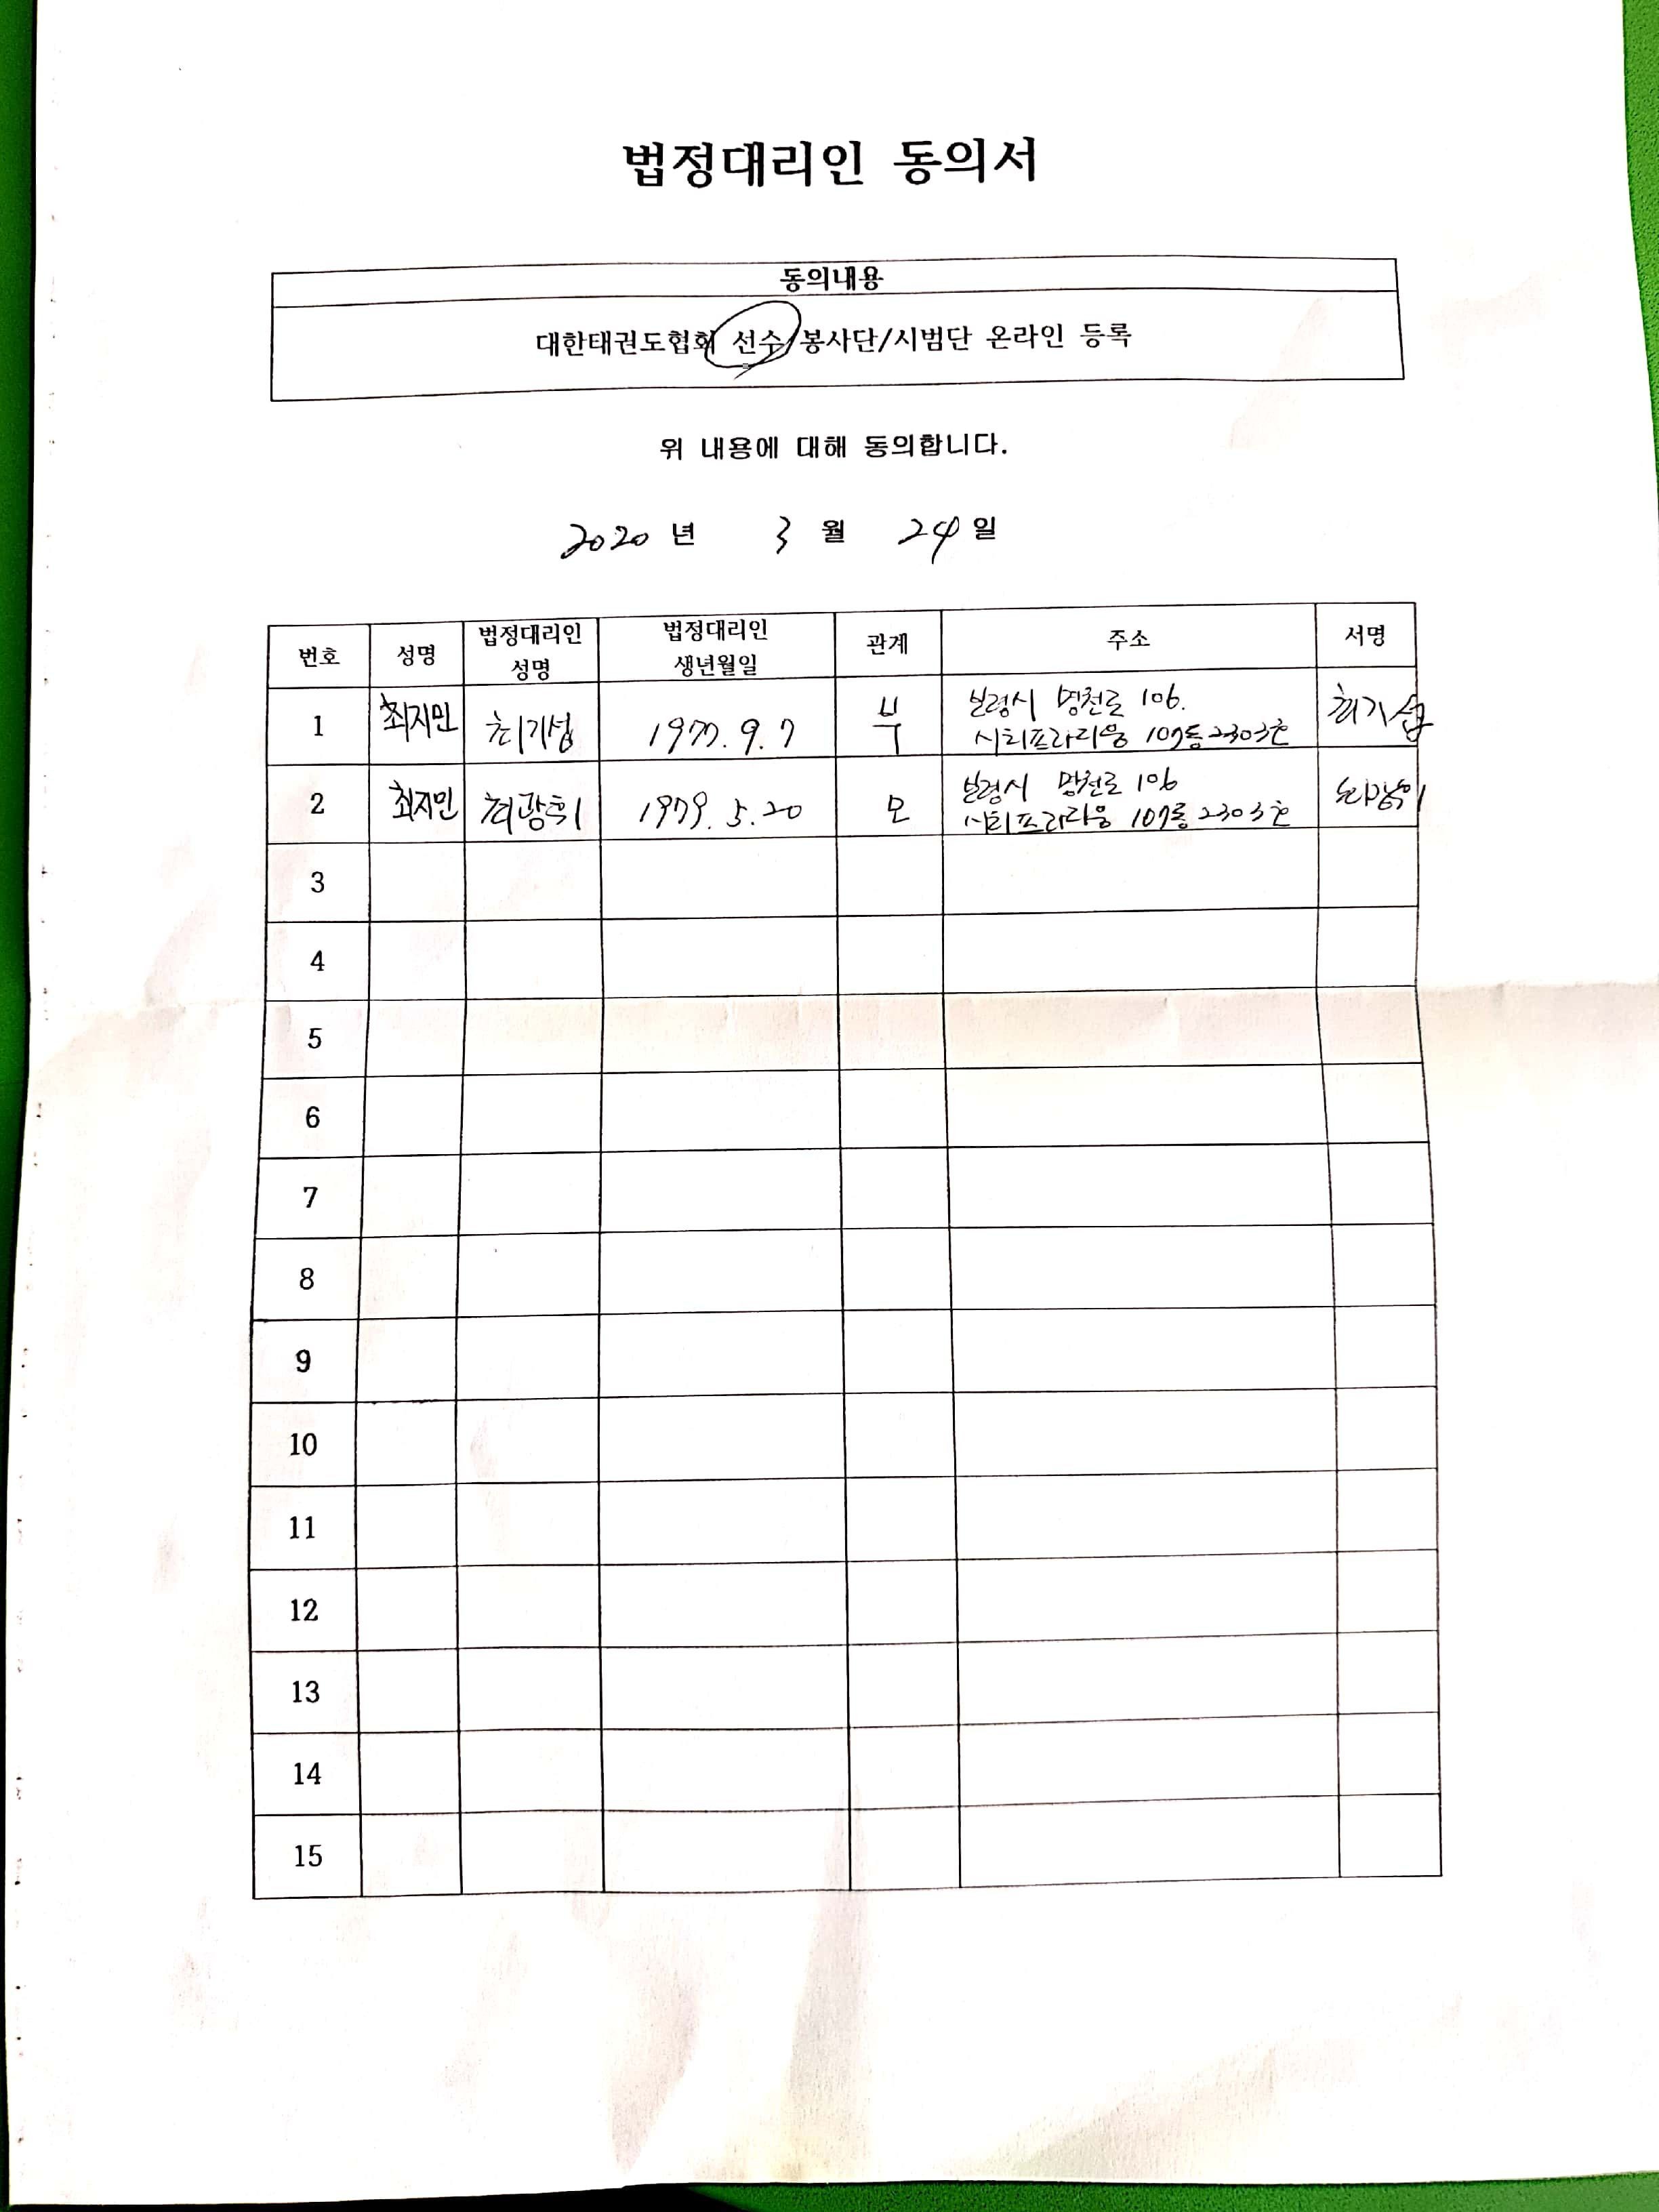 법정대리인 동의서
동의내용
대한태권도협회 선수/봉사단/시범단 온라인 등록
위 내용에 대해 동의합니다.
2020 년 3 월 24 일
번호 성명 법정대리인 성명 법정대리인 생년월일 관계 주소 서명
1 최지민 최기섭 1977. 9. 7 부 보령시 명천로 106.
시티프라디움 107동 2303호 최기섭
2 최지민 최광희 1979. 5. 20 모 보령시 명천로 106
시티프라디움 107동 2303호
3
4
5
6
7
8
9
10
11
12
13
14
15